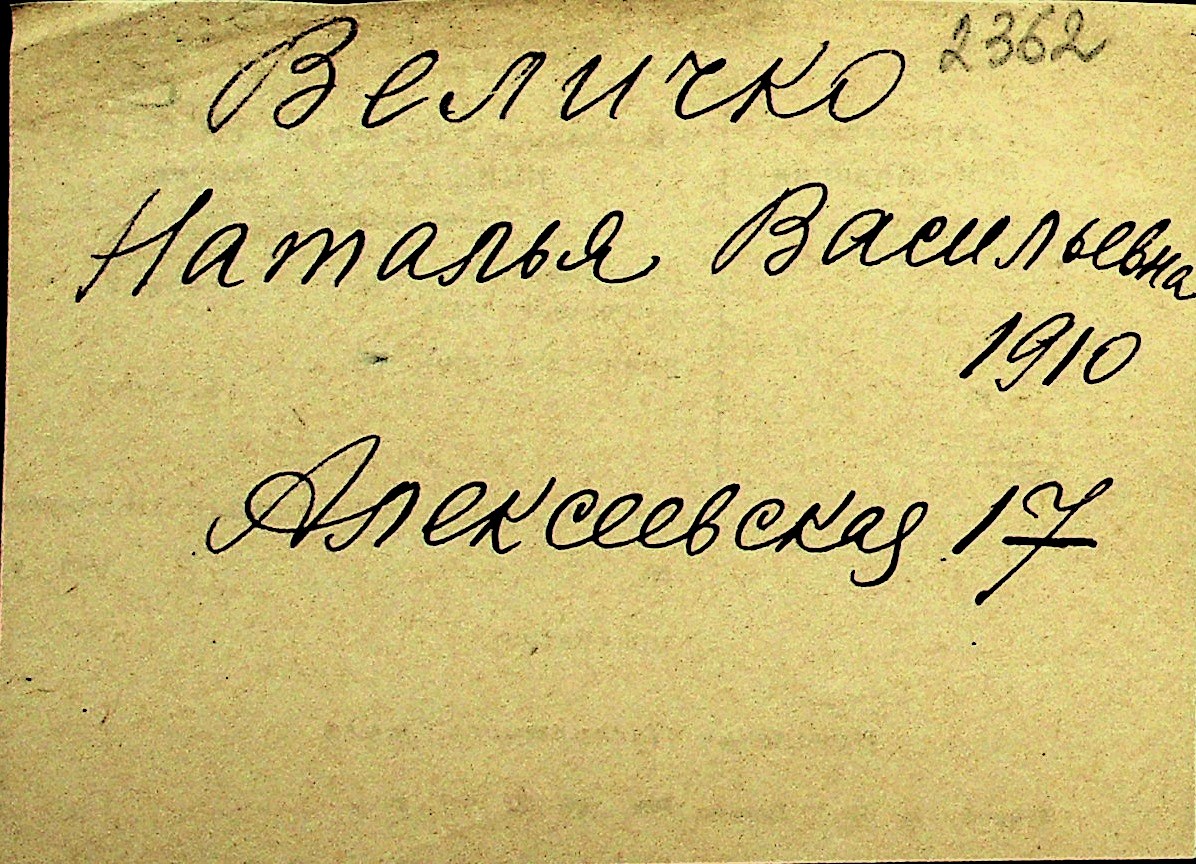 Величко 2362
Наталья Васильевна
1910
Алексеевская 17